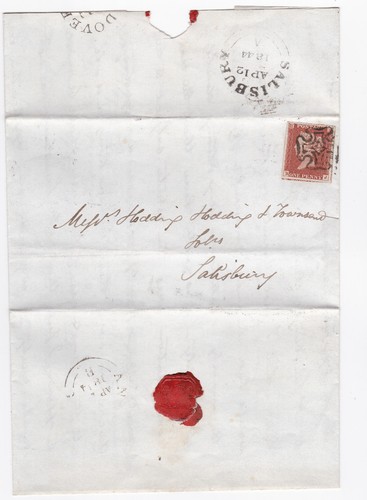 DOVER
SALISBURY
AP 12
1844
A
ONE PENNY
Messrs. Hodding Hodding & Townsend
Solrs
Salisbury
AP